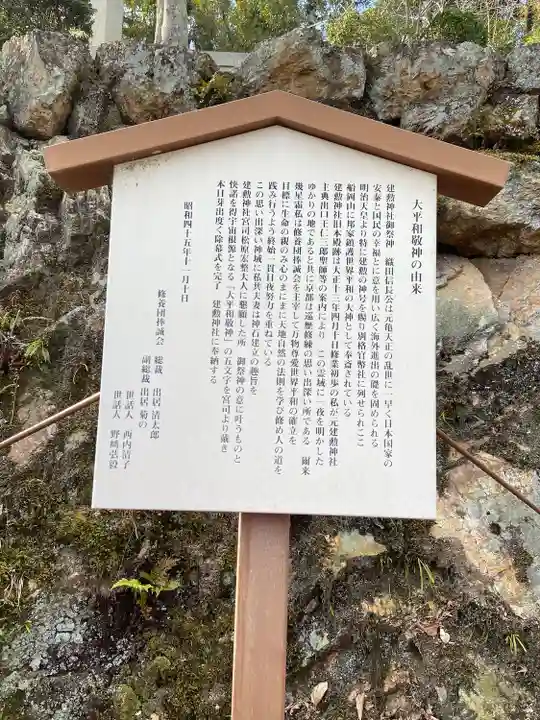 大平和敬神の由来
建勲神社御祭神 織田信長公は元亀天正の乱世に一早く日本国家の
安泰と国民の幸福とに意を用い広く海外進出の礎を固められる
明治天皇より特に建勲の神号を賜り別格官幣社に列せられここ
船岡山に邦家鎮護世界平和の大神として奉斎されている
建勲神社旧本殿跡は大正十三年四月十日修業初歩の私が元建勲神社
主典出口王仁三郎聖師等の案内により この霊域に一夜を明かした
ゆかりの地であると共に京都は巡歴修練の思い出深い所である 爾来
幾星霜私は修養団捧誠会を主宰して万物尊愛世界平和の確立を
目標に生命の親のみ心のまにまに天地自然の法則を学び修め人の道を
践み行うよう終始一貫日夜努力を重ねている
この思い出深い神域に私共夫妻は神石建立の趣旨を
建勲神社宮司松原宏整大人に懇願した所 御祭神の意に叶うものと
快諾を得宇宙根源となる「大平和敬神」の五文字を宮司より戴き
本日芽出度く除幕式を完了 建勲神社に奉納する
昭和四十五年十一月十日
修養団捧誠会 総裁 出居清太郎
副総裁 出居菊の
世話人 西内清子
世話人 野崎弘毅